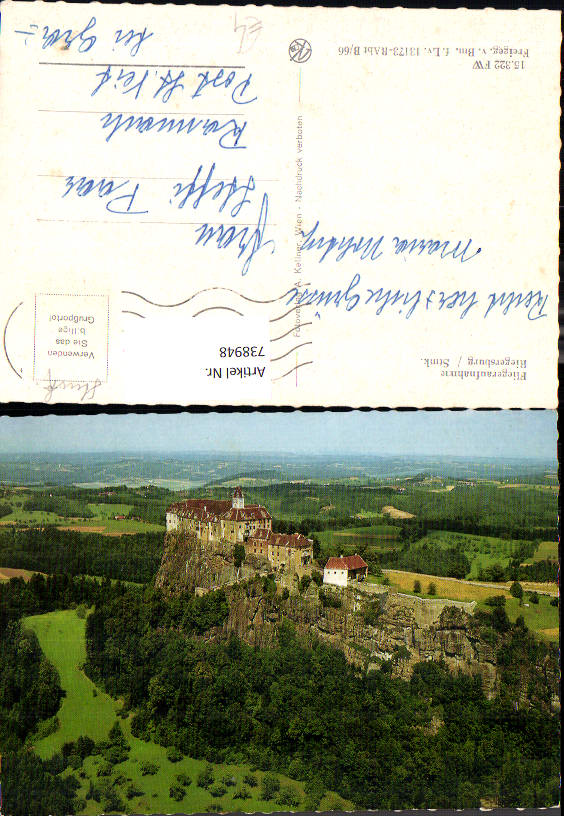 Fliegeraufnahme
Riegersburg / Stmk.
Recht herzliche Grüsse
Maria
15.322 FW
Freigeg. v. Bm. f. Lv. 13173-RAbt B/66
Fotoverlag A. Kellner, Wien - Nachdruck verboten
Artikel Nr.
738948
Verwenden
Sie das
billige
Grußporto!
Frau
Steffi Paar
Post St Veit
bei Graz